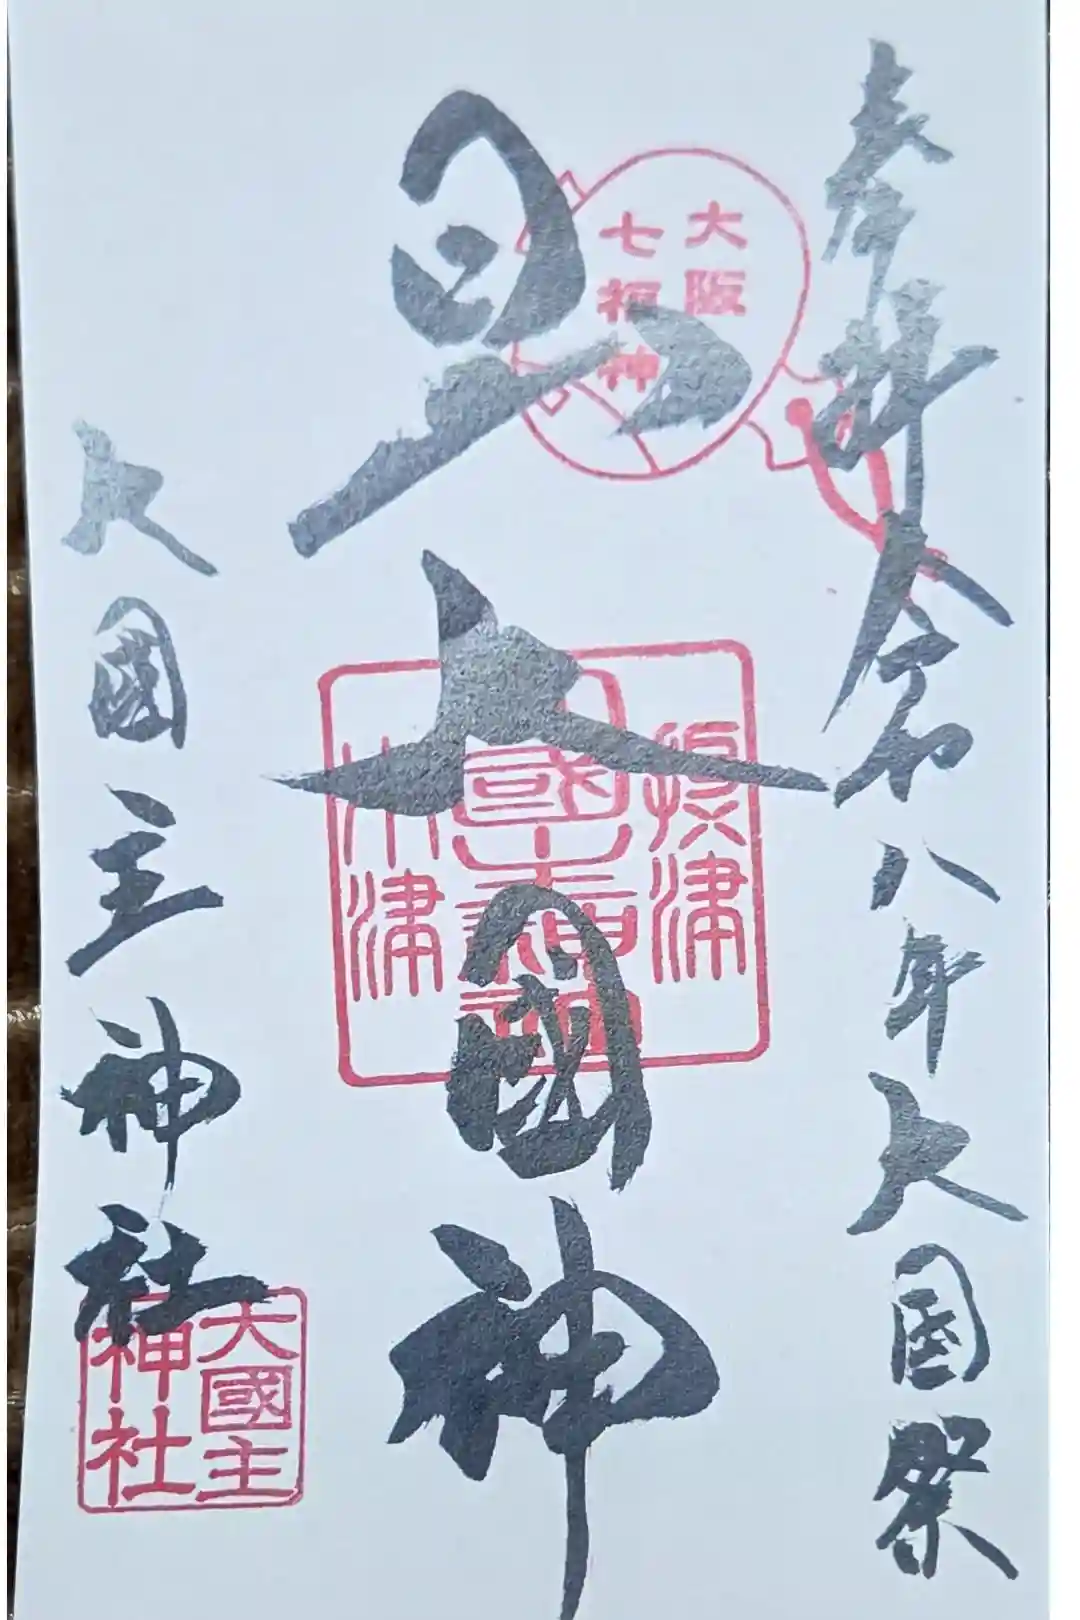 奉拝 令和八年大国祭
大阪
七福神
大國神
摂津
大國主神
木津
大國主神社
大國主
神社